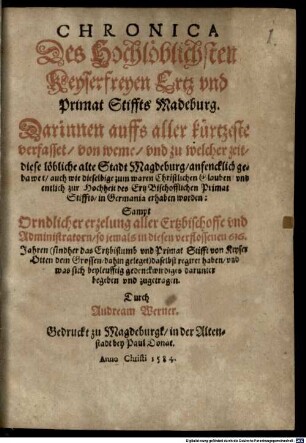 1.
CHRONICA
Des Hochlöblichsten
Keyserfreyen Ertz vnd
Primat Stiffts Madeburg.
Darinnen auffs aller kürtzeste
verfasset / von weme / vnd zu welcher zeit /
diese löbliche alte Stadt Magdeburg / anfencklich ge-
bawet / auch wie dieselbige zum waren Christlichen Glauben / vnd
entlich zur Hochheit des Ertz Bischofflichen Primat
Stiffts / in Germania erhaben worden:
Sampt
Orndlicher erzelung aller Ertzbischoffe vnd
Administratorn / so jemals in diesen verflossenen
Jahren (sindher das Ertzbistumb vnd Primat Stifft von Keyser
Otten dem Grossen / dahin geleget) daselbst regiret haben / vnd
was sich beyleufftig gedenckwirdiges darunter
begeben vnd zugetragen.
Durch
Andream Werner.
Gedruckt zu Magdeburgk / in der Alten-
stadt bey Paul Donat.
Anno Christi 1584.